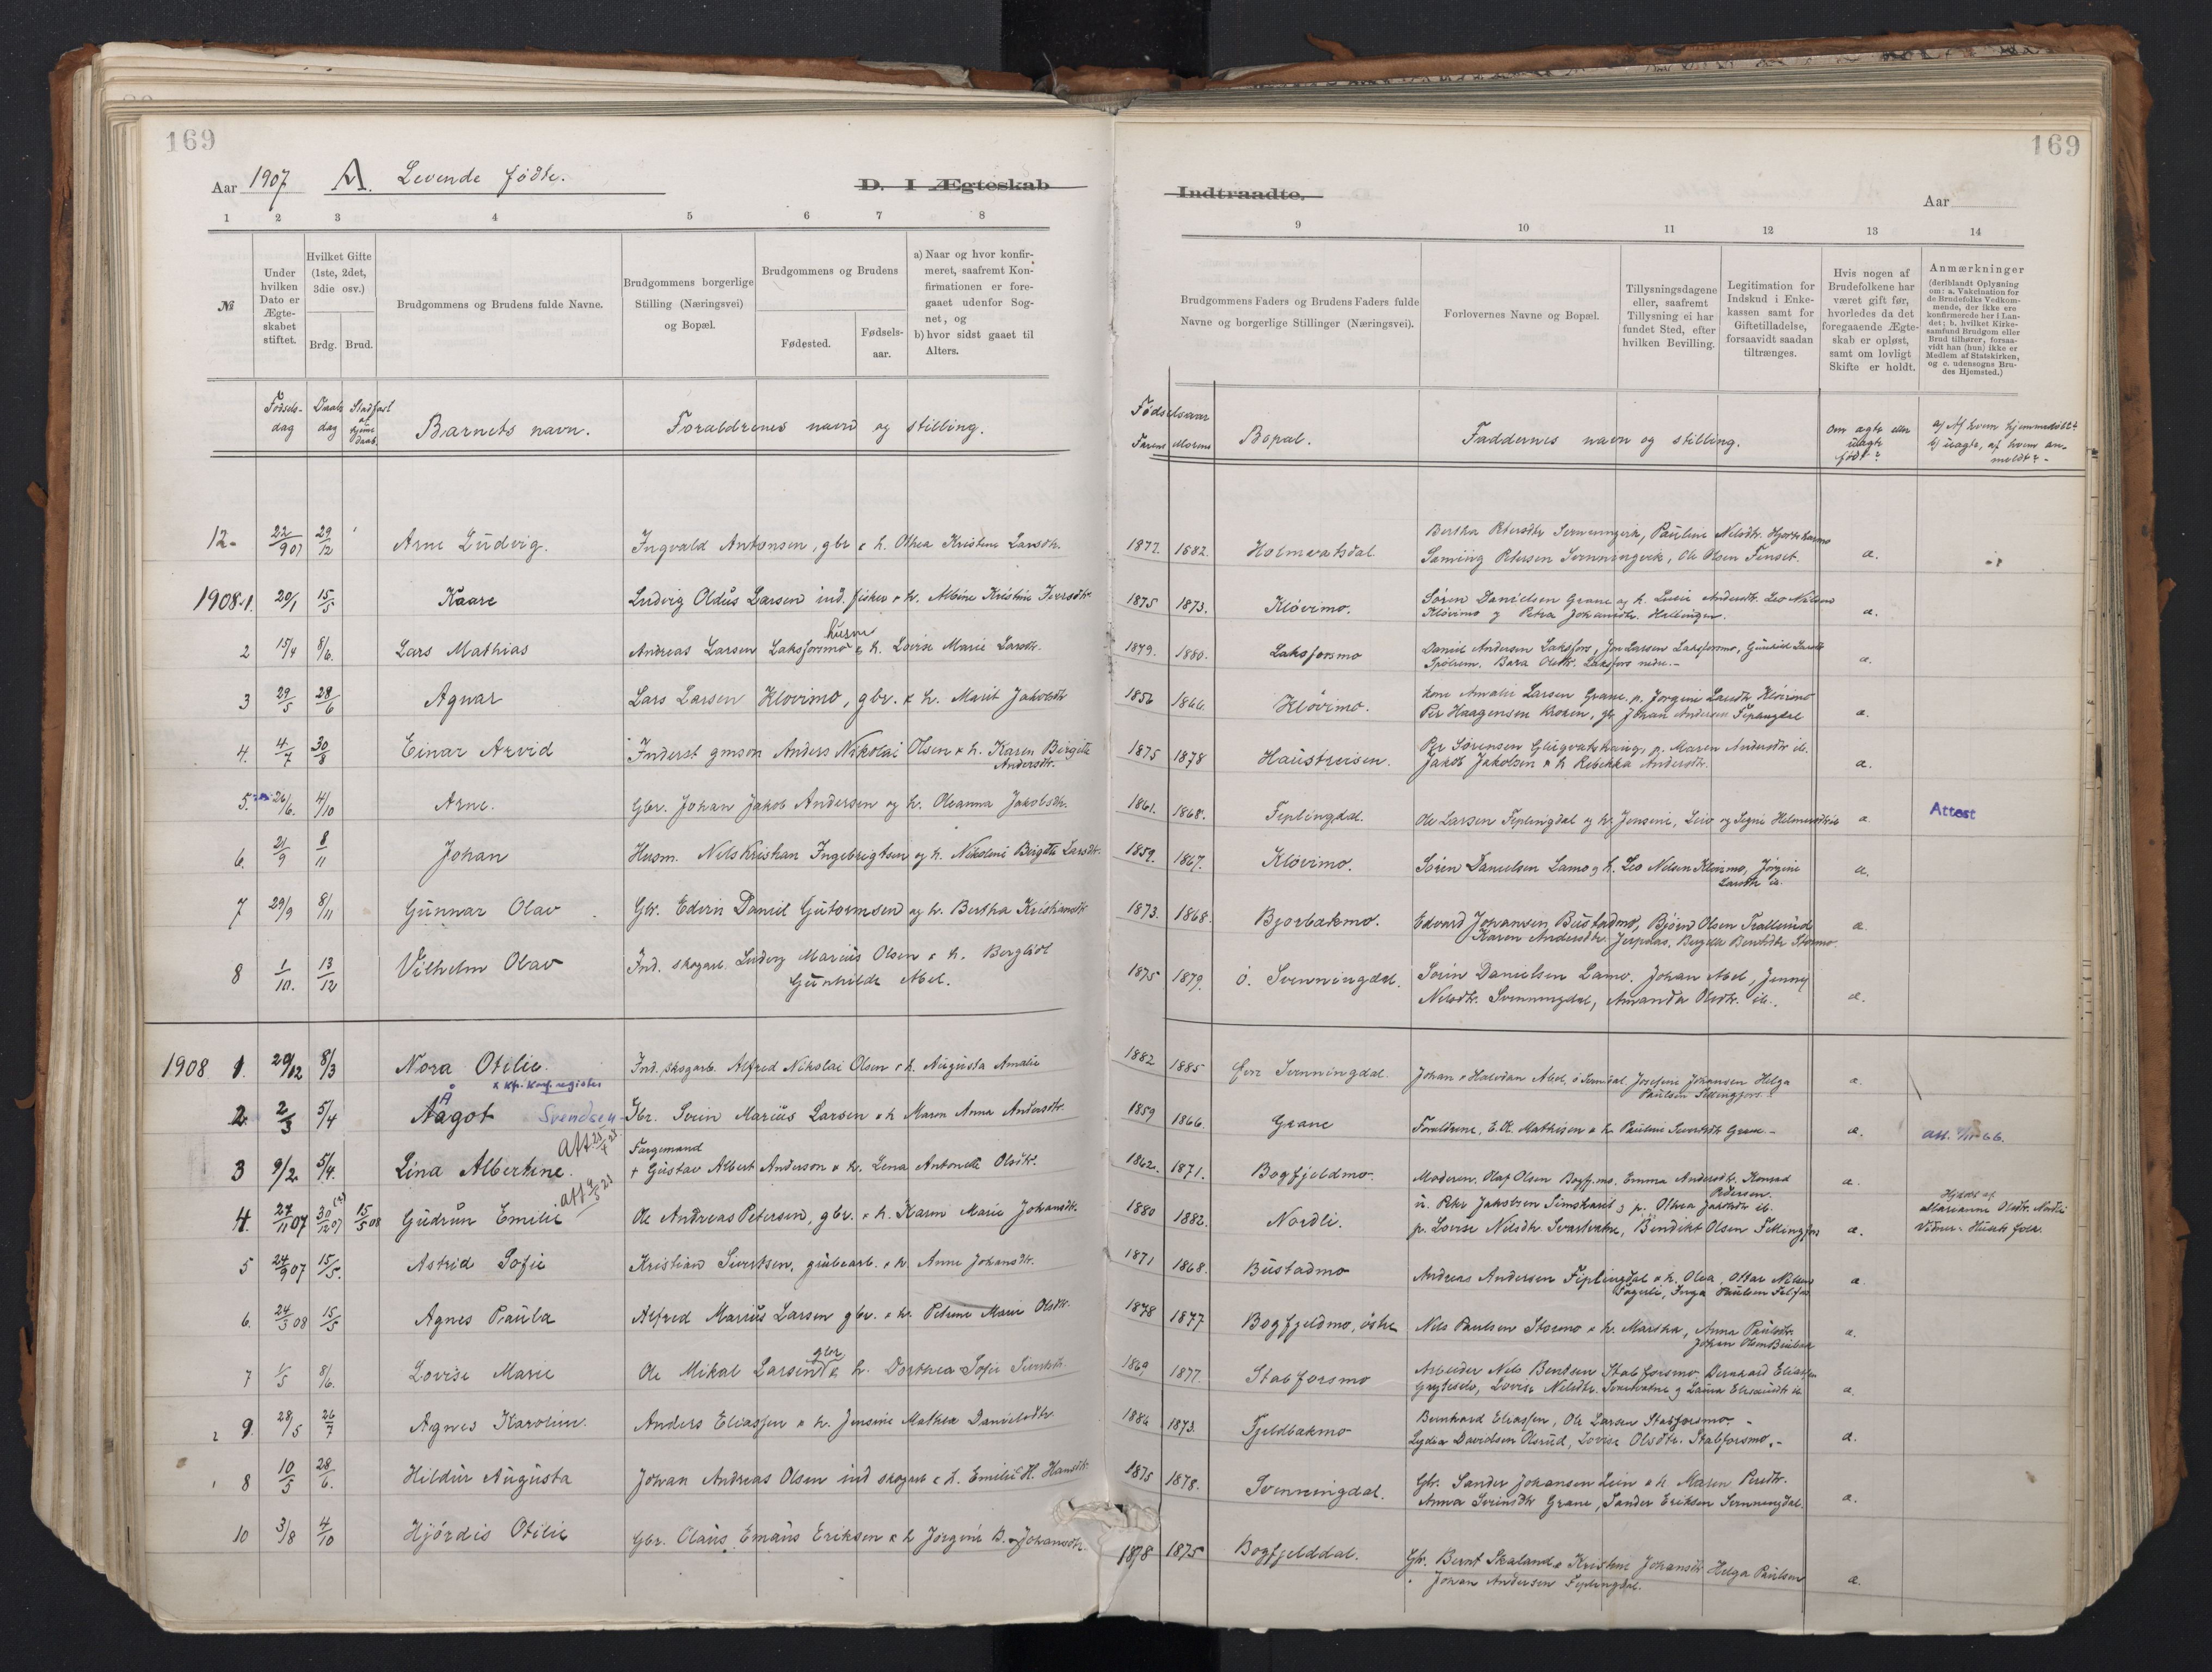 169
Aar 1907 A. Levende fødte. D. I Ægteskab
1 2 3 4 5 6 7 8
№
Under hvilken Dato er Ægte-skabet stiftet.
Hvilket Gifte (1ste, 2det, 3die osv.)
Brdg. Brud.
Brudgommens og Brudens fulde Navne.
Brudgommens borgerlige Stilling (Næringsvei) og Bopæl.
Brudgommens og Brudens
Fødested. Fødsels-aar.
a) Naar og hvor konfir-meret, saafremt Kon-firmationen er fore-gaaet udenfor Sog-net, og
b) hvor sidst gaaet til Alters.
Fødsels-dag Daabs dag Barnets navn. Forældrenes navn og stilling.
12. 22/9 07 29/12 Arne Ludvig. Ingvald Antonsen, gbr & h. Othea Kristine Larsdtr.
1908. 1. 20/1 15/5 Kaare Ludvig Oldus Larsen ind. fisker & h. Albine Kristine Iversdtr
2 15/4 8/6. Lars Mathias Andreas Larsen Laksforsmo husm & h. Lovise Marie Larsdtr.
3 29/5 28/6 Agnar Lars Larsen Kløvimo, gbr. & h. Marit Jakobsdtr
4. 4/7 30/8 Einar Arvid Inderst gmson Anders Nikolai Olsen & h. Karen Birgitte
Andersdtr.
5. 26/6. 4/10 Arne. Gbr. Johan Jakob Andersen og h. Oleanna Jakobsdtr.
6. 21/9 8/11 Johan Husm. Nils Kristian Ingebrigtsen og h. Nikoline Birgitte Larsdtr.
7 29/9 8/11 Gunnar Olav Gbr. Edvin Daniel Gutormsen og h. Bertha Kristiansdtr
8 1/10. 13/12 Vilhelm Olav Ind. skogarb. Ludvig Marius Olsen & h. Bergliot
Gunhilde Abel.
1908 1. 29/12 8/3 Nora Otilie. Ind. skogarb. Alfred Nikolai Olsen & h. Augusta Amalie
x kfr. Konf. register
2. 2/3 5/4 Å Aagot Svendsen Gbr. Svein Marius Larsen & h Maren Anna Andersdtr.
3 9/2 5/4. Lina Albertine. Færgemand
+ Gustav Albert Anderson & h. Lena Antonette Olsdtr.
4. 27/11 07 30/12 07 15/5 08 Gudrun Emilie Ole Andreas Petersen, gbr. & h. Karen Marie Johansdtr.
5 24/9 07 15/5. Astrid Sofie Kristian Sivertsen, grubearb. & h. Anne Johansdtr.
6. 24/3 08 15/5 Agnes Paula Alfred Marius Larsen gbr. & h. Petrine Marie Olsdtr.
7 1/5 8/6. Lovise Marie Ole Mikal Larsen gbr. & h. Dorthea Sofie Sivertsdtr.
9. 28/5 26/7 Agnes Karoline. Anders Eliassen & h. Jensine Mathea Danielsdtr.
8 10/5 28/6. Hildur Augusta Johan Andreas Olsen ind skogarb & h. Emilie H. Hansdtr.
10 3/8 4/10 Hjørdis Otilie Gbr. Olaus Emaus Eriksen & h Jørgine B. Johansdtr.
169
Indtraadte. Aar
9 10 11 12 13 14
Brudgommens Faders og Brudens Faders fulde Navne og borgerlige Stillinger (Næringsvei).
Forlovernes Navne og Bopæl.
Tillysningsdagene eller, saafremt Tillysning ei har fundet Sted, efter hvilken Bevilling.
Legitimation for Indskud i Enke-kassen samt for Giftetilladelse, forsaavidt saadan tiltrænges.
Hvis nogen af Brudefolkene har været gift før, hvorledes da det foregaaende Ægte-skab er opløst, samt om lovligt Skifte er holdt.
Anmærkninger (deriblandt Oplysning om: a. Vakcination for de Brudefolks Vedkom-mende, der ikke ere konfirmerede her i Lan-det; b. hvilket Kirke-samfund Brudgom eller Brud tilhører, forsaa-vidt han (hun) ikke er Medlem af Statskirken, og c. udensogns Bru-des Hjemsted.)
Fødselsaar
Farens Morens Bopæl. Faddernes navn og stilling. Om ægte eller uægte født? a) Af hvem hjemmedøbt?
b) uægte, af hvem an-
meldt?
1877. 1882. Holmvatsdal. Bertha Petersdtr Svenningvik, Pauline Nilsdtr.
Petersen Svenningvik, Ole Olsen Finset. a.
1875 1873. Kløvimo. Søren Danielsen Grane og h. Lucie Andersdtr. Leo Nilsen
Kløvimo og Petra Johansdtr. Hellingen. a.
1879. 1880. Laksforsmo Daniel Andersen Laksfors, Jon Larsen Laksforsmo, Gunhild Larsdtr
Laksfors nedre. a.
1856 1866. Kløvimo. Amalie Larsen Grane, p. Jørgine Larsdtr Kløvimo
Per Haagensen Kroken, gbr Johan Andersen Fiplingdal a.
1875 1878 Haustreisen. Per Sørensen p. Maren Andersdtr ib.
Jakob Jakobsen & h Rebekka Andersdtr. a.
1861. 1868. Fiplingdal. Ole Larsen Fiplingdal og h. Jensine, a. Attest
1859. 1867. Kløvimo. Søren Danielsen Lamo & h. Leo Nilsen Kløvimo, Jørgine
Larsdtr ib. a.
1873. 1868. Bjorbækmo. Edvard Johansen Bustadmo, Bjørn Olsen Trallerud a.
Karen Andersdtr. Jerpaas, Bergitte Bentsdtr Stormo.
1875 1879. Ø. Svenningdal. Sørin Danielsen Lamo. Johan Abel, Jenny
Nilsdtr. Svenningdal, Amanda Olsdtr. ib. a.
1882 1885 Øvre Svenningdal. Johan & Halvdan Abel, Josefine Johansen Helga
Paulsen a.
1859 1866. Grane Forældrene, E. Chr. Mathisen & h. Pauline Sivertsdtr Grane a.
1862. 1871. Bogfjeldmo. Moderen. Olaf Olsen Bogfj.mo. Emma Andersdtr. Konrad
Pedersen. a.
1880 1882. Nordli. u. Peter Jakobsen Simskard & p. Othea Jakobsdtr ib.
p. Lovise Nilsdtr. Svartvatne, Bendikt Olsen Fellingfors a. Hjdøbt af
Marianne Olsdtr. Nordli
1871 1868. Bustadmo Andreas Andersen Fiplingdal & h. Olea, Ottar Nilsen
Fagerli, Inga Paulsen a.
1878 1877 Bogfjeldmo, østre Nils Paulsen Stormo & h. Martha, Anna Paulsdtr.
Johan Olsen a.
1869 1877. Stabforsmo Arbeider Nils Bentsen Stabforsmo, Bernhard Eliassen
Lovise Nilsdtr. Svartvatne & Laura a.
1886 1873. Fjeldbækmo Bernhard Eliassen, Ole Larsen Stabforsmo
Lydia Davidsen Olsrud, Lovise Olsdtr. Stabforsmo. a.
1875 1878. Svenningdal. Gbr. Sander Johansen Lein & h. Maren Persdtr.
Anna Sørinsdtr Grane, Sander Eriksen Svenningdal. a.
1878 1875 Bogfjelddal. Gbr. Bernt Skaland & Kristine Johansdtr Helga Paulsen
Johan Andersen Fiplingdal. a.